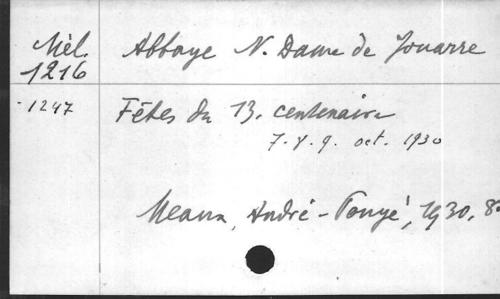 Mél. Abbaye N. Dame de Jouarre
1216
- 1247 Fêtes du 13. centenaire
7. 8. 9. oct. 1930
Meaux, André-Pouyé, 1930, 8o